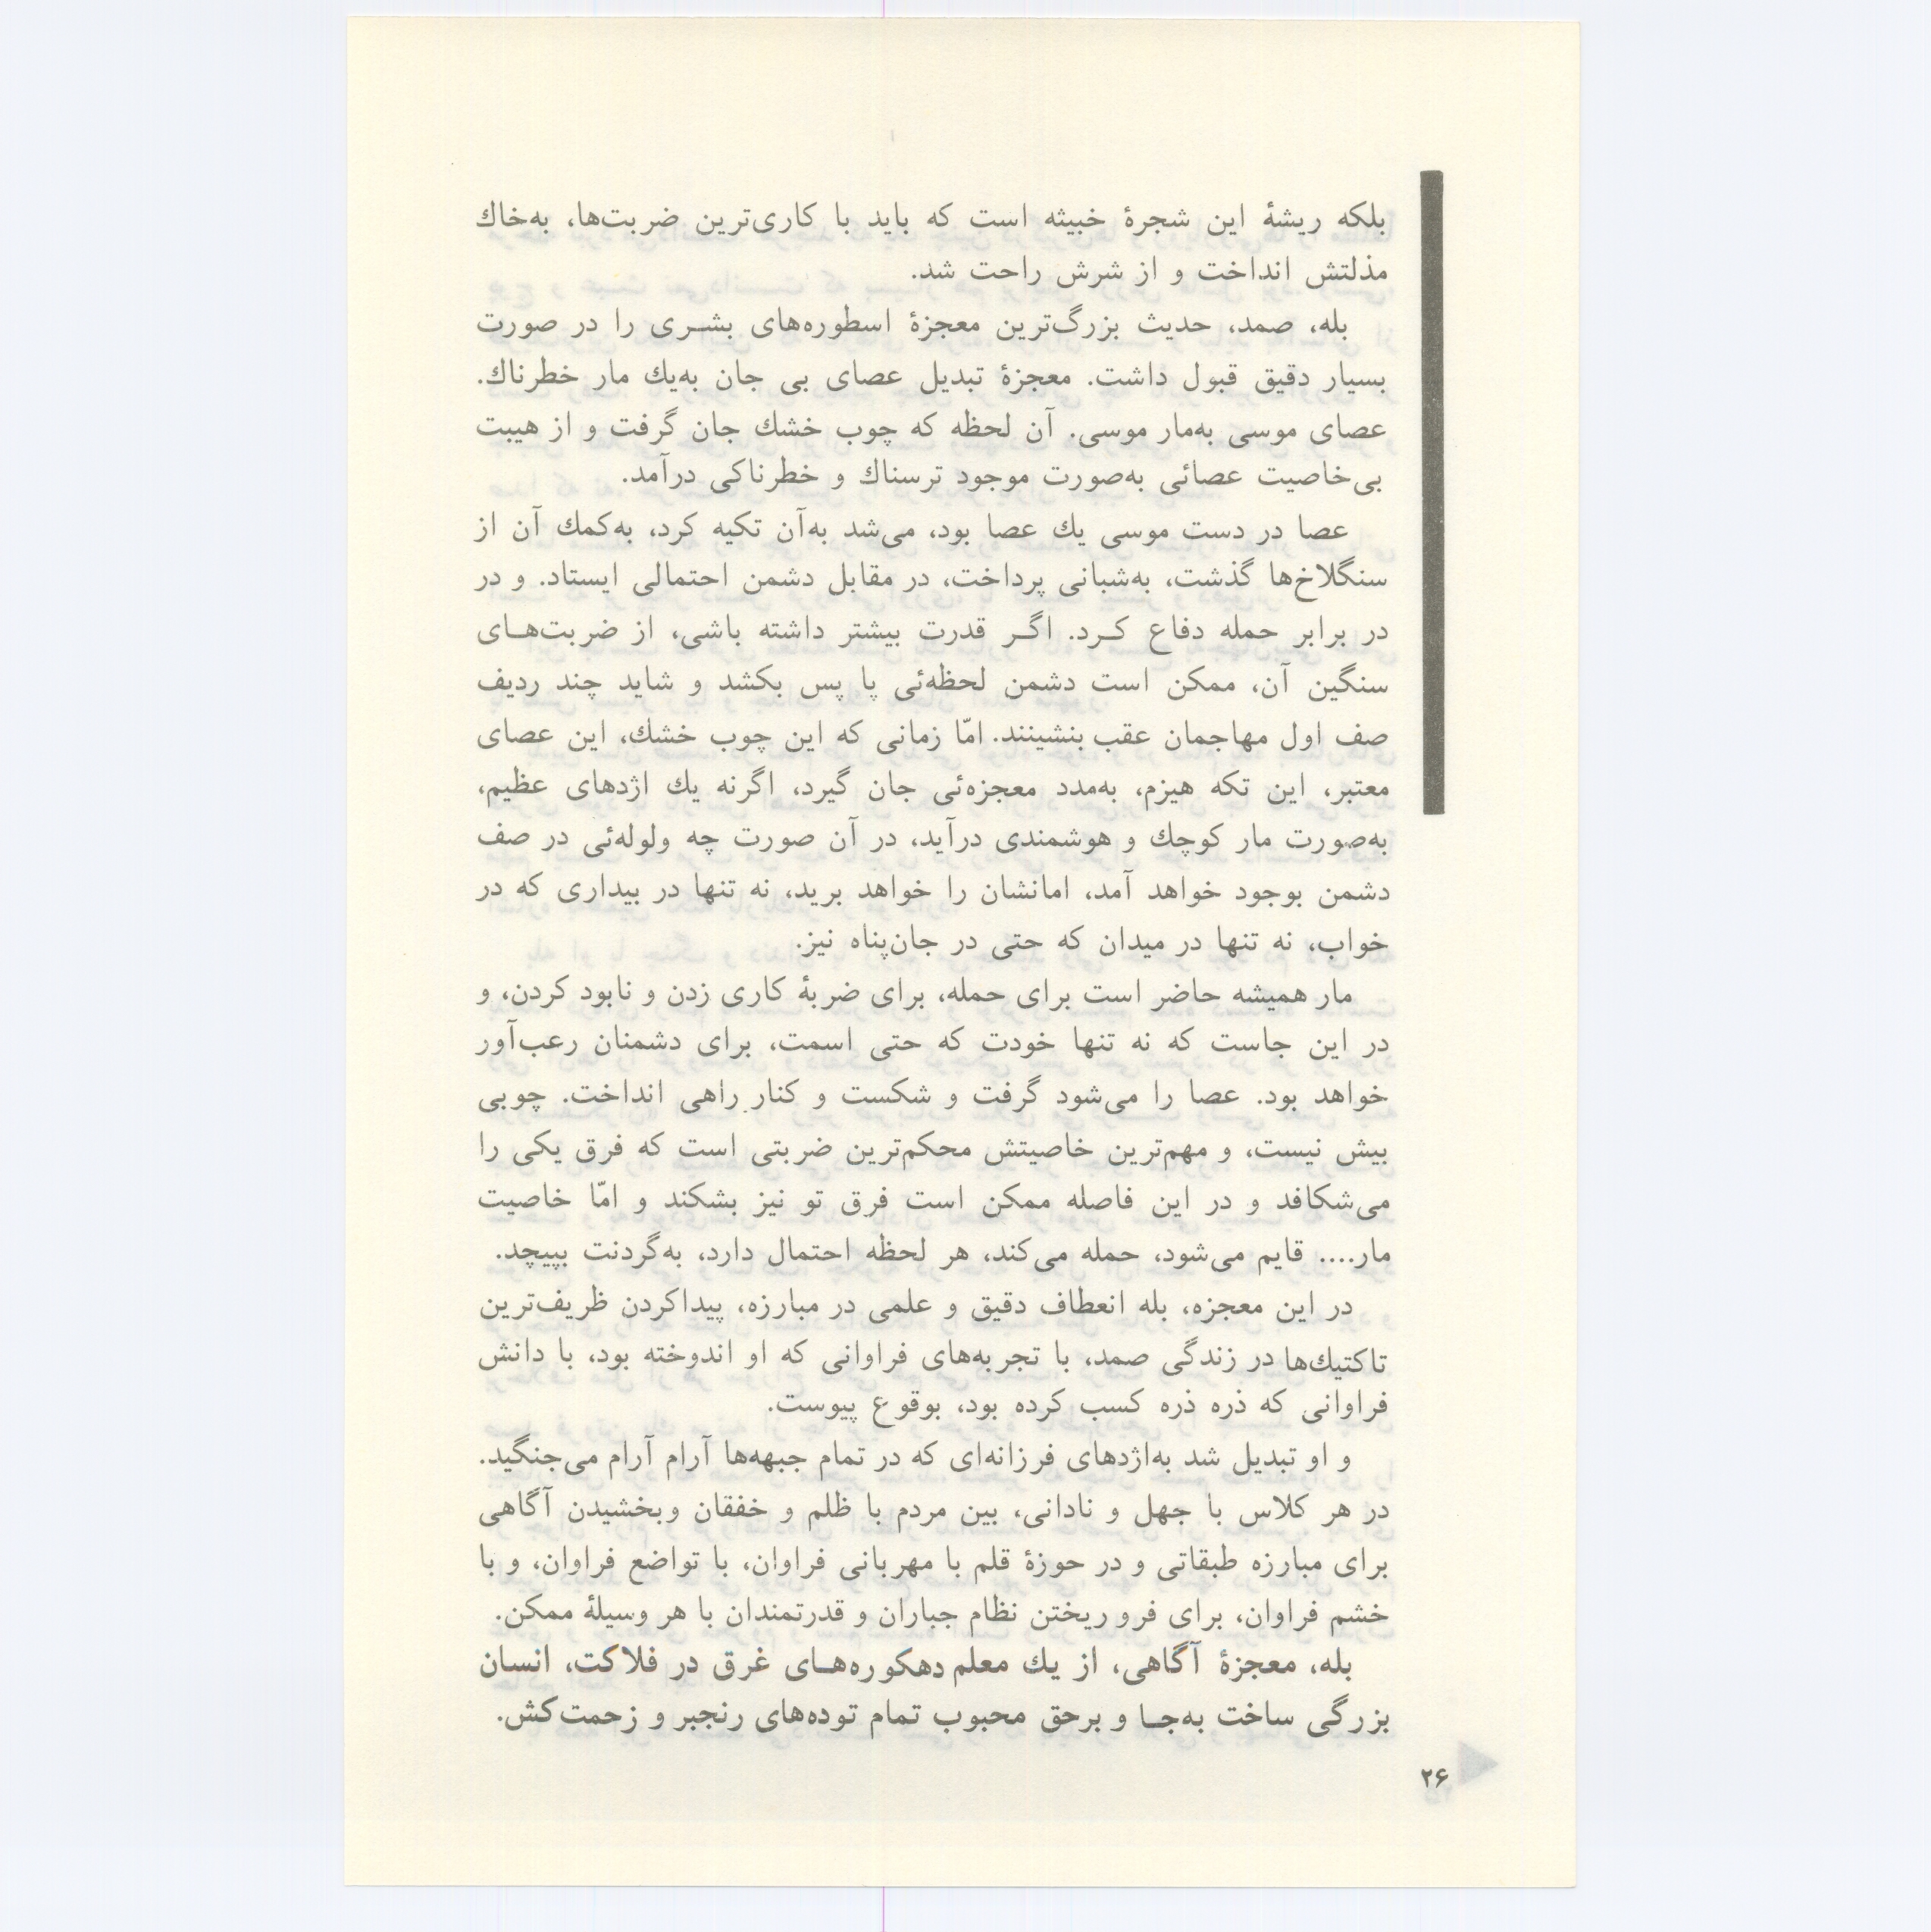 بلکه ریشهٔ این شجرهٔ خبیثه است که باید با کاری‌ترین ضربت‌ها، به‌خاك
مذلتش انداخت و از شرش راحت شد.
بله، صمد، حدیث بزرگ‌ترین معجزهٔ اسطوره‌های بشــری را در صورت
بسیار دقیق قبول داشت. معجزهٔ تبدیل عصای بی جان به‌یك مار خطرناك.
عصای موسی به‌مار موسی. آن لحظه که چوب خشك جان گرفت و از هیبت
بی‌خاصیت عصائی به‌صورت موجود ترسناك و خطرناکی درآمد.
عصا در دست موسی یك عصا بود، می‌شد به‌آن تکیه کرد، به‌کمك آن از
سنگلاخ‌ها گذشت، به‌شبانی پرداخت، در مقابل دشمن احتمالی ایستاد. و در
در برابر حمله دفاع کــرد. اگــر قدرت بیشتر داشته باشی، از ضربت‌هــای
سنگین آن، ممکن است دشمن لحظه‌ئی پا پس بکشد و شاید چند ردیف
صف اول مهاجمان عقب بنشینند. امّا زمانی که این چوب خشك، این عصای
معتبر، این تکه هیزم، به‌مدد معجزه‌ئی جان گیرد، اگرنه یك اژدهای عظیم،
به‌صورت مار کوچك و هوشمندی درآید، در آن صورت چه ولوله‌ئی در صف
دشمن بوجود خواهد آمد، امانشان را خواهد برید، نه تنها در بیداری که در
خواب، نه تنها در میدان که حتی در جان‌پناه نیز.
مار همیشه حاضر است برای حمله، برای ضربهٔ کاری زدن و نابود کردن، و
در این جاست که نه تنها خودت که حتی اسمت، برای دشمنان رعب‌آور
خواهد بود. عصا را می‌شود گرفت و شکست و کنار راهی انداخت. چوبی
بیش نیست، و مهم‌ترین خاصیتش محکم‌ترین ضربتی است که فرق یکی را
می‌شکافد و در این فاصله ممکن است فرق تو نیز بشکند و امّا خاصیت
مار.... قایم می‌شود، حمله می‌کند، هر لحظه احتمال دارد، به‌گردنت بپیچد.
در این معجزه، بله انعطاف دقیق و علمی در مبارزه، پیداکردن ظریف‌ترین
تاکتیك‌ها در زندگی صمد، با تجربه‌های فراوانی که او اندوخته بود، با دانش
فراوانی که ذره ذره کسب کرده بود، بوقوع پیوست.
و او تبدیل شد به‌اژدهای فرزانه‌ای که در تمام جبهه‌ها آرام آرام می‌جنگید.
در هر کلاس با جهل و نادانی، بین مردم با ظلم و خفقان وبخشیدن آگاهی
برای مبارزه طبقاتی و در حوزهٔ قلم با مهربانی فراوان، با تواضع فراوان، و با
خشم فراوان، برای فرو ریختن نظام جباران و قدرتمندان با هر وسیلهٔ ممکن.
بله، معجزهٔ آگاهی، از یك معلم دهکوره‌هــای غرق در فلاکت، انسان
بزرگی ساخت به‌جــا و برحق محبوب تمام توده‌های رنجبر و زحمت‌کش.
۲۶